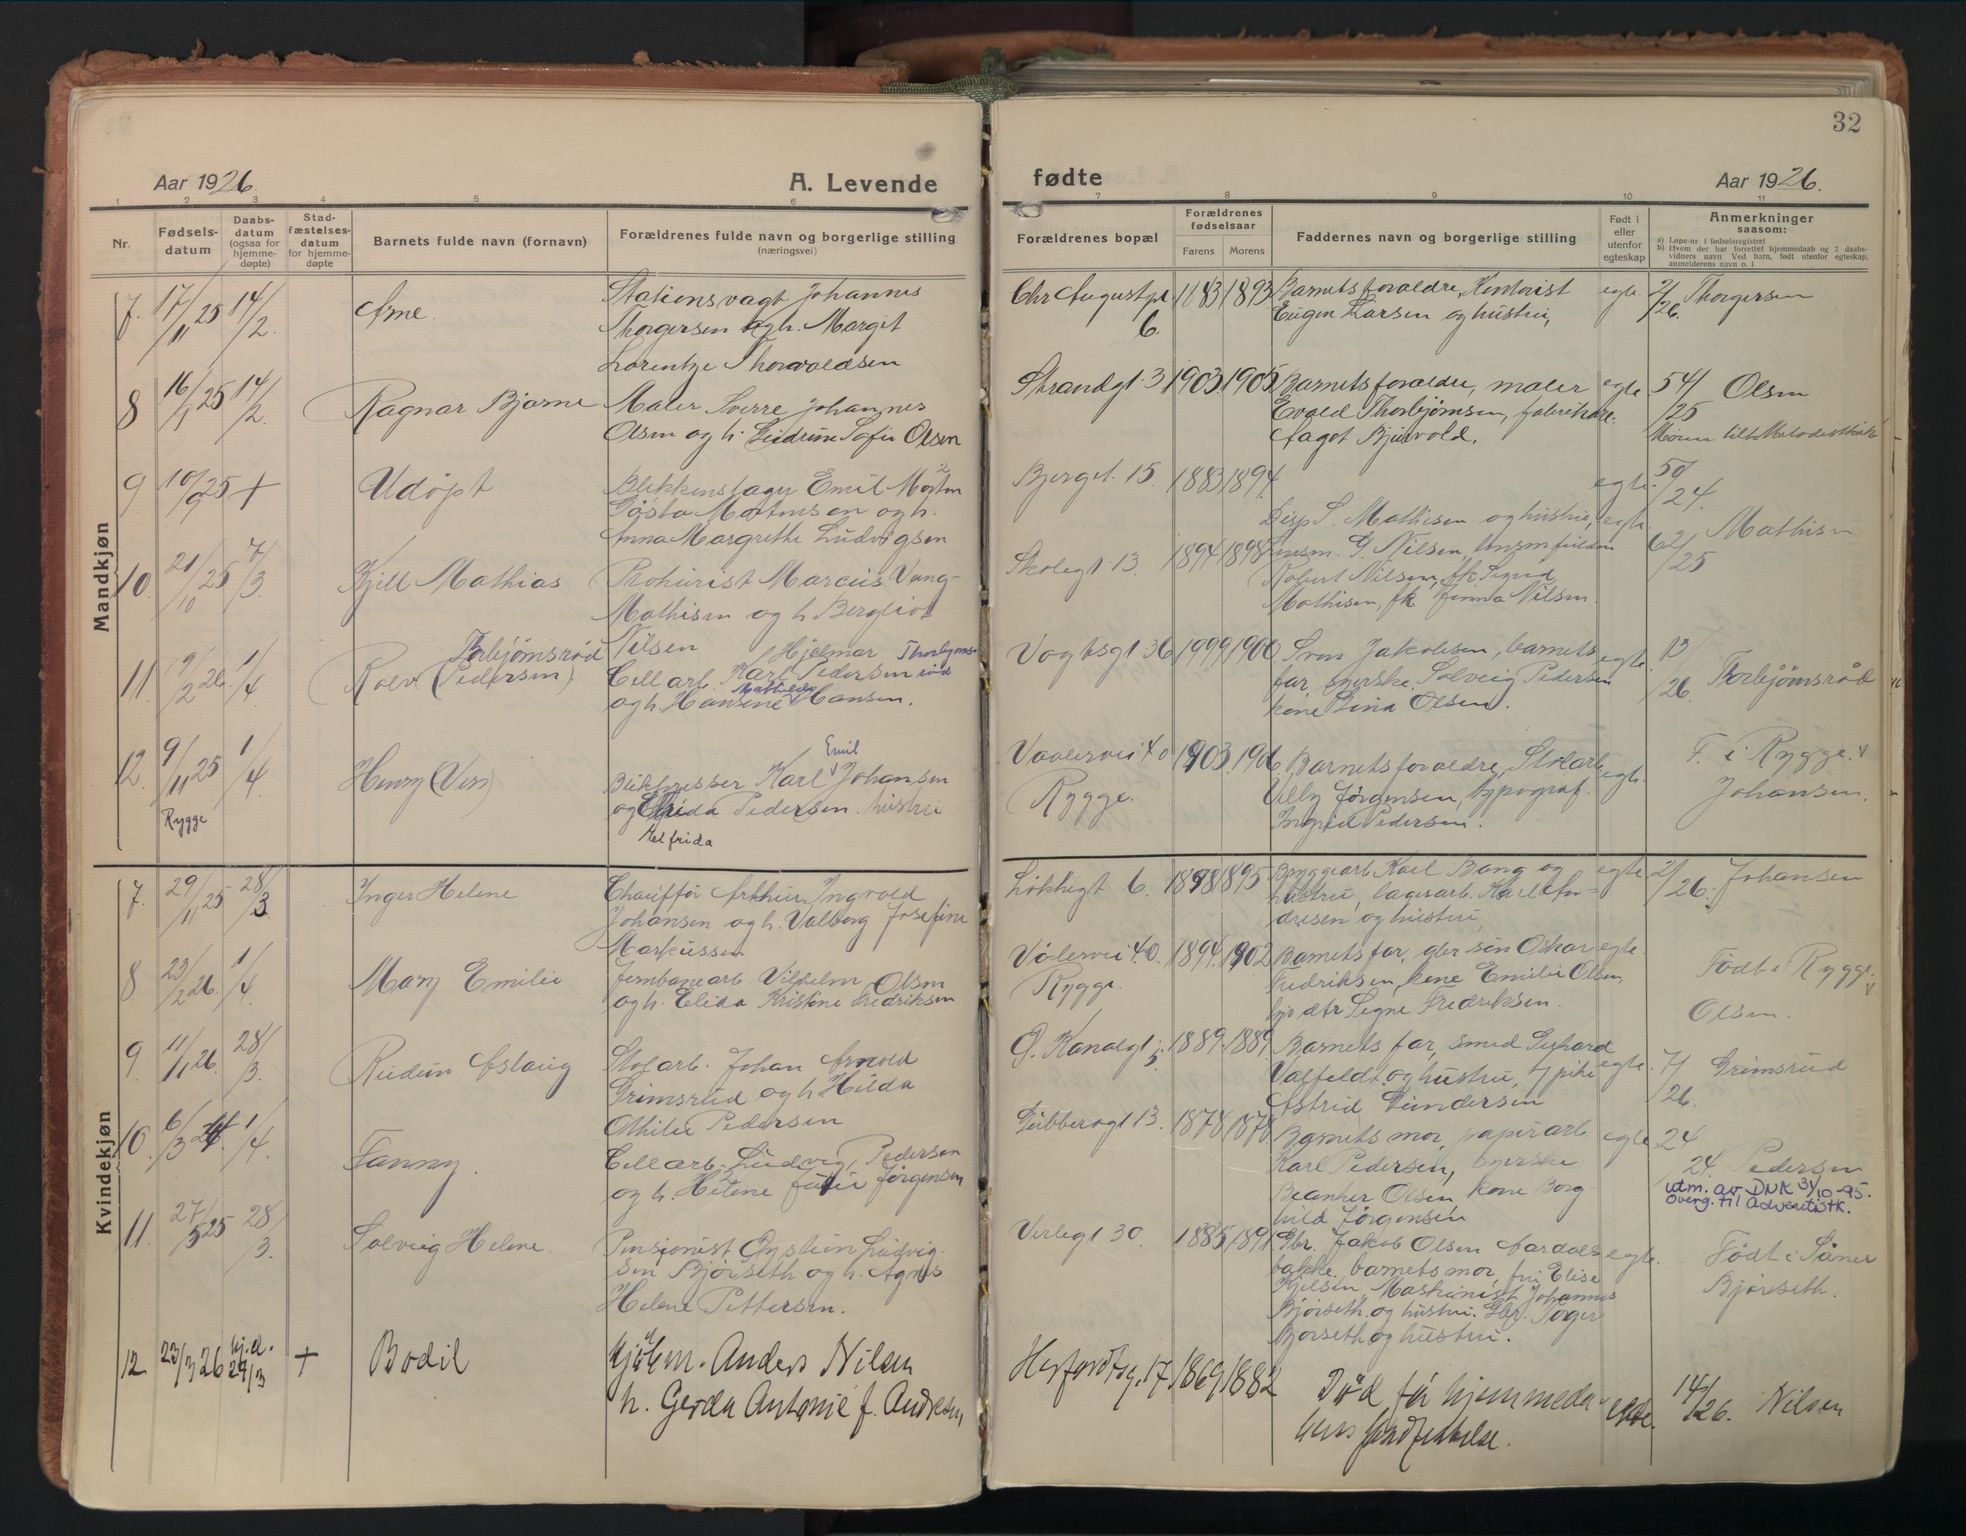 32
Aar 1926.
A. Levende
fødte
Aar 1926.
1 2 3 4 5 6 7 8 9 10 11
Nr.
Fødsels-
datum
Daabs-
datum
(ogsaa for
hjemme-
døpte)
Stad-
fæstelses-
datum
for hjemme-
døpte
Barnets fulde navn (fornavn)
Forældrenes fulde navn og borgerlige stilling
(næringsvei)
Forældrenes bopæl
Forældrenes
fødselsaar
Farens Morens
Faddernes navn og borgerlige stilling
Født i
eller
utenfor
egteskap
Anmerkninger
saasom:
a) Løpe-nr. i fødselsregistret
b) Hvem der har forrettet hjemmedaab og 2 daabs-
vidners navn Ved barn, født utenfor egteskap,
anmelderens navn o. l
Mandkjøn
7. 17/11 25 14/2. Arne.
Stationsvagt Johannes
Thorgersen og h. Margit
Lorentze Thorvaldsen
Chr Augustpl.
6.
1883 1893
Barnets forældre, Kontorist
Eugen Larsen og hustru,
egte. 2/26. Thorgersen
8 16/1 25 14/2. Ragnar Bjarne
Maler Sverre Johannes
Olsen og h. Gudrun Sofie Olsen
Strandgt. 3 1903. 1905
Barnets forældre, maler
Evald Thorbjørnsen,
Aagot
egte. 54/25 Olsen
9 10/9 25 + Udøpt
Blikkenslager Emil Morten
Gösta Mortensen og h.
Anna Margrethe Ludvigsen
Bjerget. 15. 1883 1894
egte. 50/24.
10. 21/10 25 7/3. Kjell Mathias
Prokurist Marcus Vang-
Mathisen og h Bergliot
Nilsen
Skolegt. 13. 1894 1898
Disp S. Mathisen og hustru,
G. Nilsen,
Robert Nilsen, fk Sigrid
Mathisen, fk. Jenna Nilsen.
egte. 62/25 Mathisen
11. 19/2 26. 1/4. Rolv (Pedersen) Torbjørnsrød
Hjalmar Thorbjørns-
Cellarb. Karl Pedersen rød
og h. Hansine Mathilde Hansen.
Vogtsgt 36 1999 1900
Sven Jakobsen, barnets
far, syerske Solveig Pedersen
kone Lina Olsen.
egte. 13/26. Torbjørnsrød
12. 9/11 25 1/4. Henry (Vers)
Rygge
Emil
Karl Johansen
og Elfrida Pedersen. hustru
Helfrida
Vaalervei 40 1903. 1906
Rygge.
Barnets forældre, Stolarb
Willy Jørgensen, typograf.
Ingrid Pedersen.
egte. F. i Rygge.
Johansen.
Kvindekjøn
7. 29/11 25 28/3. Inger Helene
Chauffør Arthur Ingvald
Johansen og h. Valborg Josefine
Markussen
6. 1898 1895
Byggearb. Karl Bang og
hustru, lagerarb. Karl An-
dresen og hustru,
egte 2/26. Johansen
8 23/2 26. 1/4. Mary Emilie
Jernbanearb. Vilhelm Olsen
og h. Elida Kristine Fredriksen
Vålervei 40. 1894. 1902
Rygge.
Barnets far, gbr søn Oskar
Fredriksen, kone Emilie Olsen,
dtr Signe Fredriksen.
egte. Født i Rygge.
Olsen.
9 11/1 26. 28/3. Reidun Aslaug
Stolarb. Johan Arnold
Grimsrud og h. Hilda
Othilie Pedersen
G. Kanalgt 5. 1889. 1889
Barnets far, smed
Valfeldt og hustru,
Astrid Gundersen
egte. 7/26. Grimsrud
10. 6/3 24 1/4. Fanny.
Cellarb. Ludvig, Pedersen
og h. Helene Julie Jørgensen
Gubberogt 13. 1878 1878
Barnets mor, papirarb
Karl Pedersen, syerske
Olsen kone Borg-
hild Jørgensen
egte. 24/24. Pedersen
utm. av DNK 31/10-95.
overg. til Adventistk.
11. 27/5 25 28/3. Solveig Helene.
Pensjonist Øystein Ludvig-
sen Bjørseth og h. Agnes
Helene Pettersen.
Verlegt 30. 1885. 1891
Gbr. Jakob Olsen Aardals-
bakke, barnets mor, fru Elise
Kjelsen, Maskinist Johannes
Bjørseth og hustru. Gbr.
Bjørseth og hustru.
egte. Født i Såner
Bjørseth.
12 23/3 26 hj.d. 29/3 + Bodil
Kjøbm. Anders Nilsen
h. Gerda Antonie f. Andresen,
17 1869 1882
Død før hjemmeda-
bens stadfestelse.
egte. 14/26. Nilsen